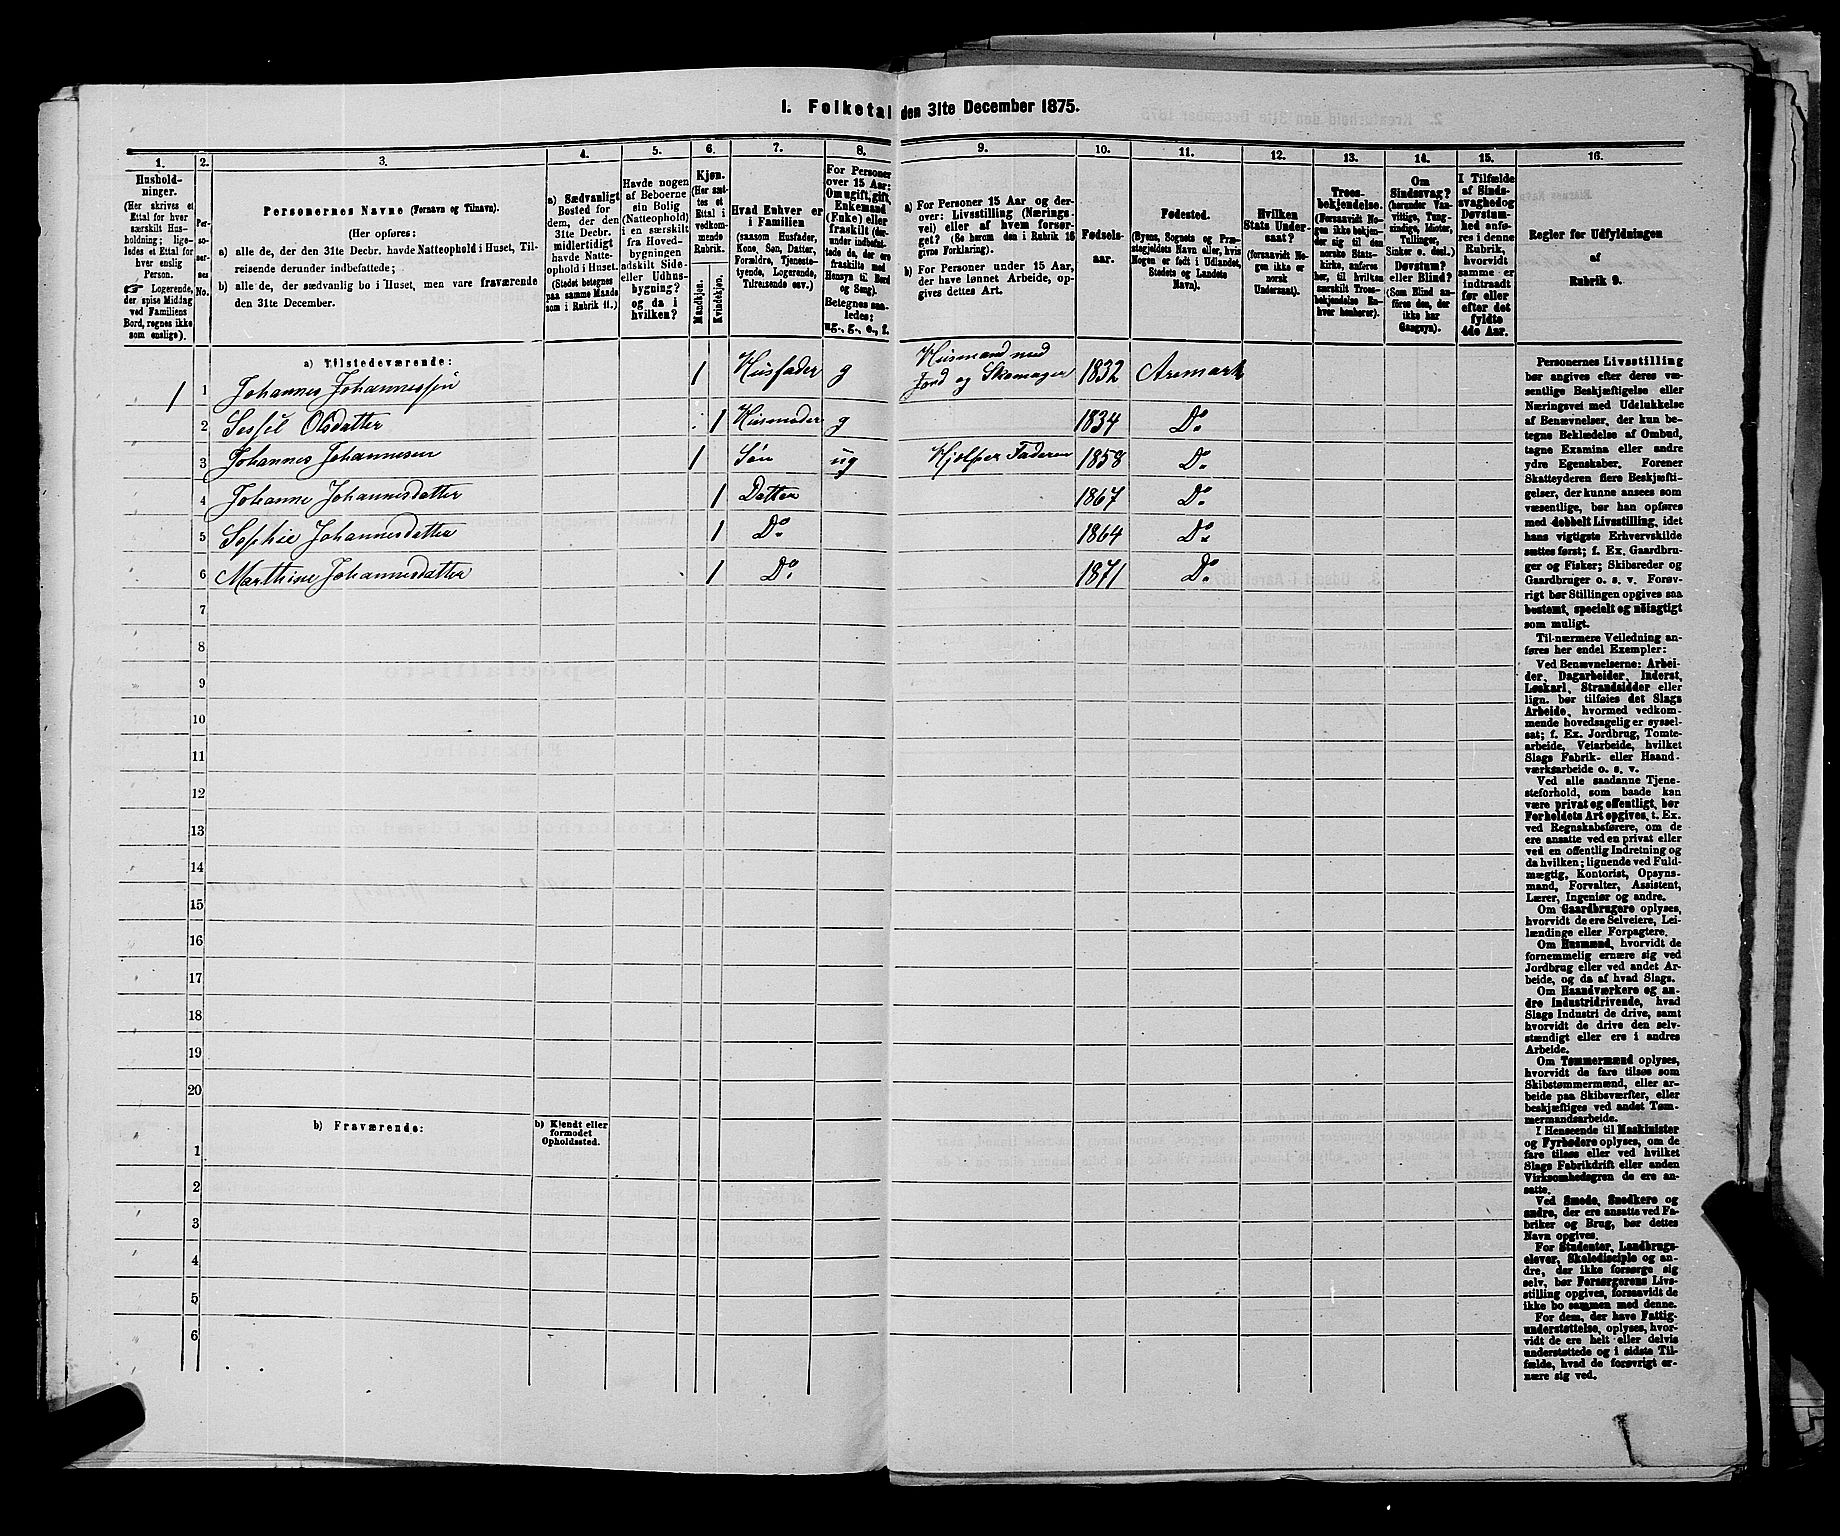 1. Folketal den 31te December 1875.
1.
2.
3.
4.
5.
6.
7.
8.
9.
10.
11.
12.
13.
14.
15.
16.
Hushold-
ninger.
(Her skrives et
Ettal for hver
særskilt Hus-
holdning; lige-
ledes et Ettal for
hver enslig
Person.
☞ Logerende,
der spise Middag
ved Familiens
Bord, regnes ikke
som enslige).
Per-
so-
ner-
nes
No.
Personernes Navne (Fornavn og Tilnavn).
(Her opføres:
a) alle de, der den 31te Decbr. havde Natteophold i Huset, Til-
reisende derunder indbefattede;
b) alle de, der sædvanlig bo i Huset, men vare fraværende
den 31te December.
a) Sædvanligt
Bosted for
dem, der den
31te Decbr.
midlertidigt
havde Natte-
ophold i Huset.
(Stedet betegnes
paa samme Maade
som i Rubrik 11.)
Havde nogen
af Beboerne
sin Bolig
(Natteophold)
i en særskilt
fra Hoved-
bygningen
adskilt Side-
eller Udhus-
bygning?
og da i
hvilken?
Kjøn.
(Her sæt-
tes et
Ettal i
vedkom-
mende
Rubrik.
Mandkjøn.
Kvindekjøn.
Hvad Enhver er
i Familien
(saasom Husfader,
Kone, Søn, Datter,
Forældre, Tjeneste-
tyende, Logerende,
Tilreisende osv.)
For Personer
over 15 Aar:
Om ugift, gift,
Enkemand
(Enke) eller
fraskilt (der-
under indbefat-
tede da, der ere
fraskilte med
Hensyn til Bord
og Seng).
Betegnes saa-
ledes:
ug., g., e., f.
a) For Personer 15 Aar og der-
over: Livsstilling (Nærings-
vei) eller af hvem forsør-
get? (Se herom den i Rubrik 16
givne Forklaring).
b) For Personer under 15 Aar,
der have lønnet Arbeide, op-
gives dettes Art.
Fødsels-
aar.
Fødested.
(Byens, Sognets og Præ-
stegjeldets Navn eller, hvis
Nogen er født i Udlandet,
Stedets og Landets
Navn).
Hvilken
Stats Under-
saat?
(forsaavidt No-
gen ikke er
norsk
Undersaat).
Troes-
bekjendelse.
(Forsaavidt No-
gen ikke bekjen-
der sig til den
norske Stats-
kirke, anføres
her, til hvilken
særskilt Troes-
bekjendelse En-
hver henhører).
Om
Sindssvag?
(herunder Van-
vittige, Tung-
sindige, Idioter,
Tullinger,
Sinker o. desl.)
Døvstum?
eller Blind?
(Som Blind an-
føres den, der
ikke har
Gangsyn).
I Tilfælde
af Sinds-
svaghed og
Døvstum-
hed anfø-
res i denne
Rubrik
hvorvidt
samme er
indtraadt
før eller
efter det
fyldte
4de Aar.
Regler for Udfyldningen
af
Rubrik 9.
a) Tilstedeværende:
1 1 Johannes Johannessøn 1 Husfader g Husmand med Jord og Skomager 1832 Aremark
2 Sessil Olsdatter 1 Husmoder g 1834 Do
3 Johannes Johannesen 1 Søn ug Hjelper Faderen 1858 Do
4 Johanne Johannesdatter 1 Datter 1867 Do
5 Sophie Johannesdatter 1 Do 1864 Do
6 Marthine Johannesdatter 1 Do 1871 Do
7
8
9
10
11
12
13
14
15
16
17
18
19
20
b) Fraværende:
b) Kjendt eller
formodet
Opholdssted.
1
2
3
4
5
6
Personernes Livsstilling
bør angives efter deres væ-
sentlige Beskjæftigelse eller
Næringsvei med Udelukkelse
af Benævnelser, der kun be-
tegne Beklædelse af Ombud,
tagne Examina eller andre
ydre Egenskaber. Forener
Skatteyderen flere Beskjæfti-
gelser, der kunne ansees som
væsentlige, bør han opføres
med dobbelt Livsstilling, idet
hans vigtigste Erhvervskilde
sættes først; f. Ex. Gaardbru-
ger og Fisker; Skibsreder og
Gaardbruger o. s. v. Forøv-
rigt bør Stillingen opgives saa
bestemt, specielt og nøiagtigt
som muligt.
Til nærmere Veiledning an-
føres her endel Exempler:
Ved Benævnelserne: Arbei-
der, Dagarbeider, Inderst,
Løskarl, Strandsidder eller
lign. bør tilføies det Slags
Arbeide, hvormed vedkom-
mende hovedsagelig er syssel-
sat; f. Ex. Jordbrug, Tomte-
arbeide, Veiarbeide, hvilket
Slags Fabrik- eller Haand-
værksarbeide o. s. v.
Ved alle saadanne Tjene-
steforhold, som baade kan
være privat og offentligt, bør
Forholdets Art opgives, t. Ex.
ved Regnskabsførere, om de
ere ansatte ved en privat eller
ved en offentlig Indretning og
da hvilken; lignende ved Fuld-
mægtig, Kontorist, Opsyns-
mand, Forvalter, Assistent,
Lærer, Ingeniør og andre.
Om Gaardbrugere oplyses,
hvorvidt de ere Selveiere, Lei-
lændinge eller Forpagtere.
Om Husmænd, hvorvidt de
fornemmelig ernære sig ved
Jordbrug eller ved andet Ar-
beide, og da af hvad Slags.
Om Haandværkere og an-
dre Industridrivende, hvad
Slags Industri de drive, samt
hvorvidt de drive den selv-
stændigt eller ere i andres
Arbeide.
Om Tømmermænd oplyses,
hvorvidt de fare tilsøs som
Skibstømmermænd, eller ar-
beide paa Skibsværfter, eller
beskjæftiges ved andet Tøm-
mermandsarbeide.
I Henseende til Maskinister
og Fyrbødere oplyses, om de
fare tilsøs eller ved hvilket
Slags Fabrikdrift eller anden
Virksomhedsgren de ere an-
satte.
Ved Smede, Snedkere og
andre, der ere ansatte ved Fa-
briker og Brug, bør dettes
Navn opgives.
For Studenter, Landbrugs-
elever, Skoledisciple og an-
dre, der ikke forsørge sig
selv, bør Forsørgerens Livs-
stilling opgives, forsaavidt de
ikke bo sammen med denne.
For dem, der have Fattig-
understøttelse, oplyses, hvor-
vidt de ere helt eller delvis
understøttede og i sidste Til-
fælde, hvad de forøvrigt er-
nære sig ved.